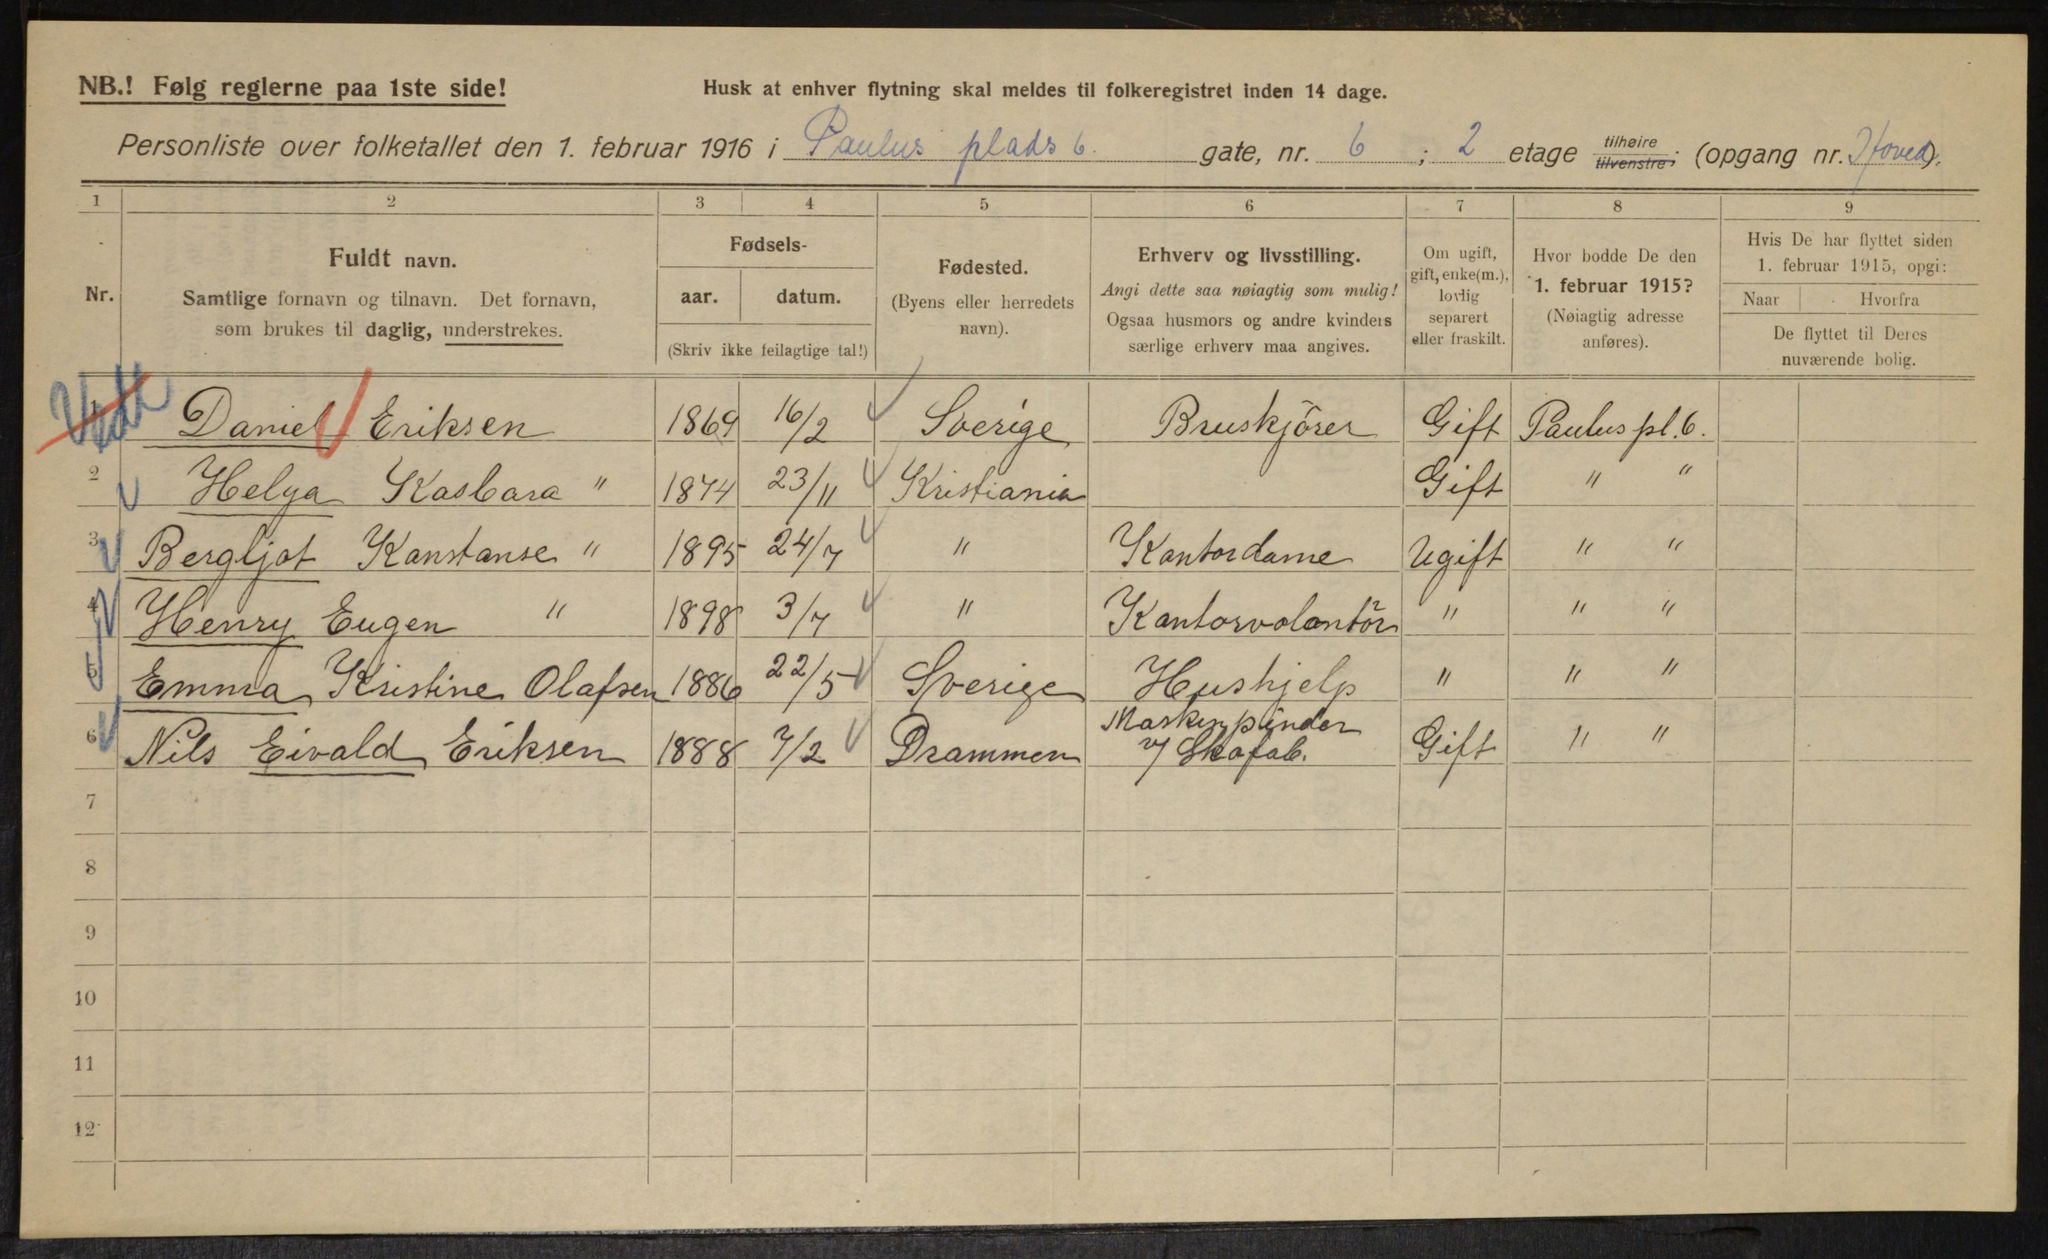 NB.! Følg reglerne paa 1ste side!
Husk at enhver flytning skal meldes til folkeregistret inden 14 dage.
Personliste over folketallet den 1. februar 1916 i Paulus plads 6. gate, nr. 6 ; 2 etage tilhøire tilvenstre; (opgang nr. Hoved).
1 2 3 4 5 6 7 8 9
Nr.
Fuldt navn.
Samtlige fornavn og tilnavn. Det fornavn,
som brukes til daglig, understrekes.
Fødsels-
aar. datum.
(Skriv ikke feilagtige tal!)
Fødested.
(Byens eller herredets
navn).
Erhverv og livsstilling.
Angi dette saa nøiagtig som mulig!
Ogsaa husmors og andre kvinders
særlige erhverv maa angives.
Om ugift,
gift, enke(m.),
lovlig
separert
eller fraskilt.
Hvor bodde De den
1. februar 1915?
(Nøiagtig adresse
anføres).
Hvis De har flyttet siden
1. februar 1915, opgi:
Naar Hvorfra
De flyttet til Deres
nuværende bolig.
1 Daniel Eriksen 1869 16/2 Sverige Bruskjörer Gift Paulus pl. 6.
2 Helga Kasbara " 1874 23/11 Kristiania Gift " "
3 Bergljot Konstanse " 1895 24/7 " Kontordame Ugift " "
4 Henry Eugen " 1898 3/7 " Kontorvolontör " " "
5 Emma Kristine Olafsen 1886 22/5 Sverige Hushjelp " " "
6 Nils Eivald Eriksen 1888 7/2 Drammen Maskinpinder v/ Skofab. Gift " "
7
8
9
10
11
12